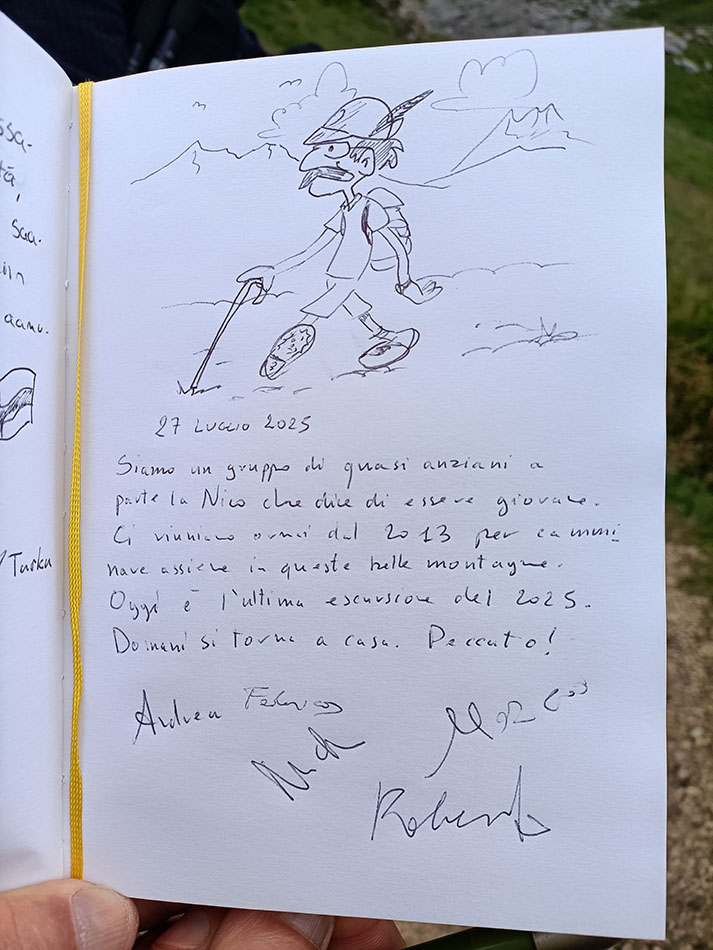 ssa-
tà,
saa-
iin
aamu-
Turku
27 LUGLIO 2025
Siamo un gruppo di quasi anziani a
parte la Nico che dice di essere giovane.
Ci riuniamo ormai dal 2013 per cammi
nare assieme in queste belle montagne.
Oggi è l'ultima escursione del 2025.
Domani si torna a casa. Peccato!
Andrea Federico
Roberto